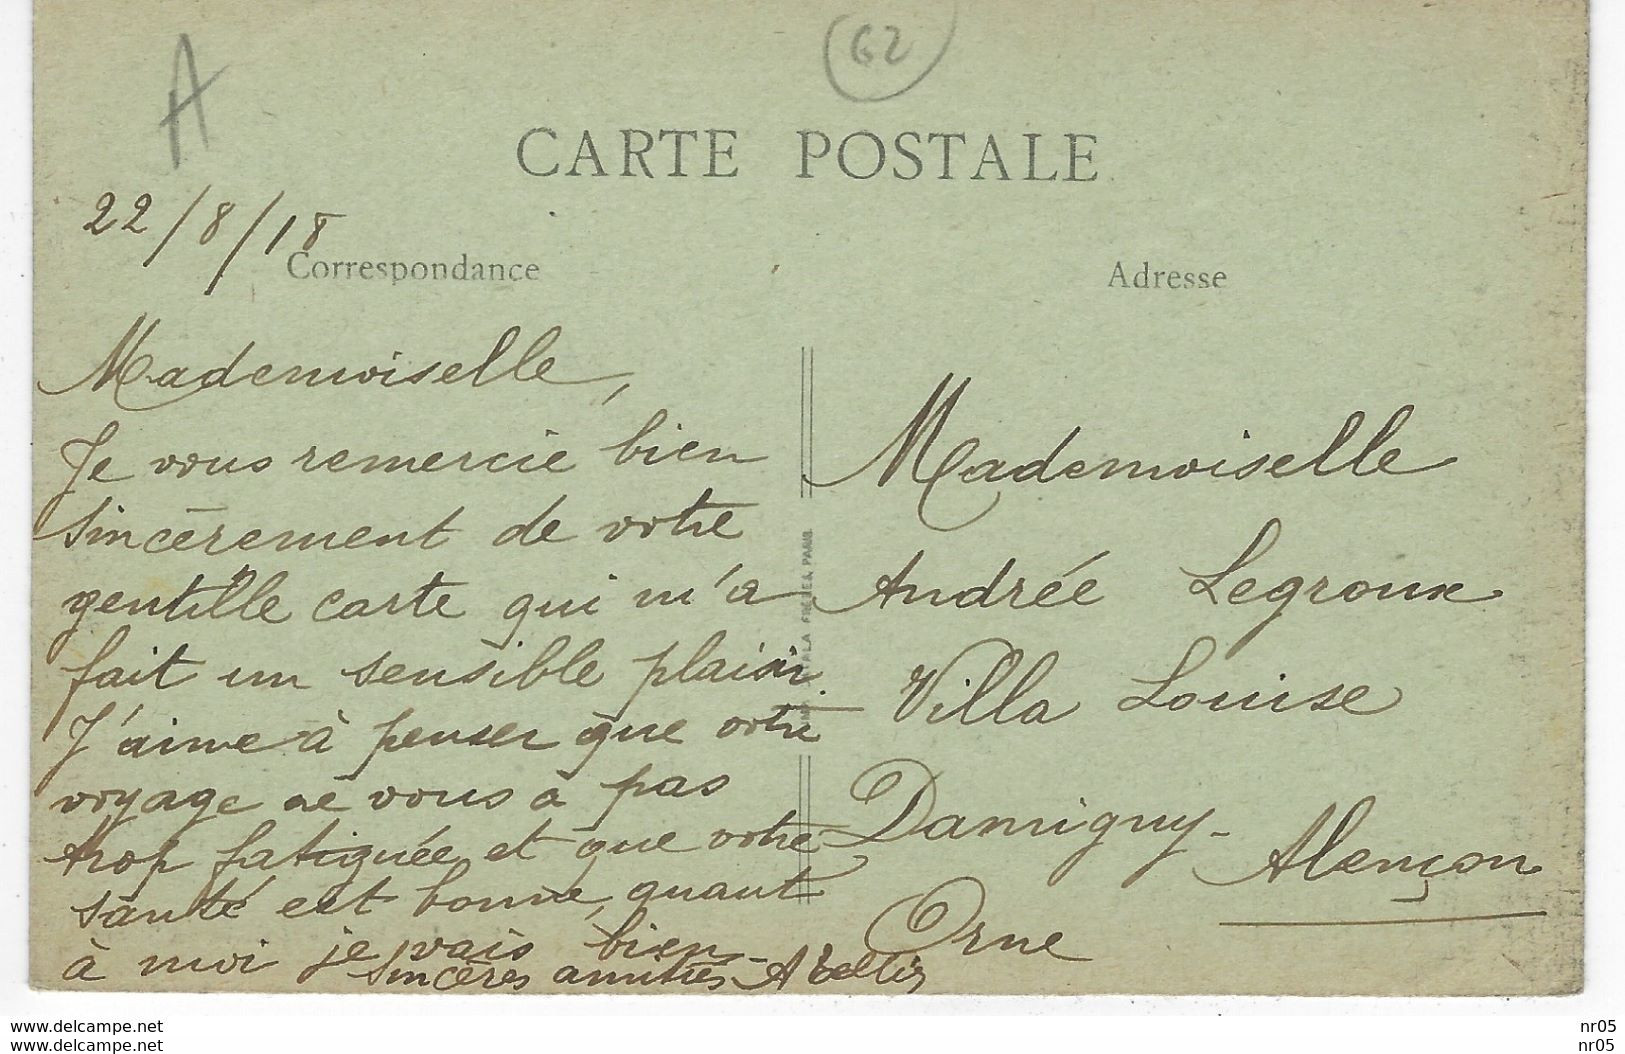 A
62
CARTE POSTALE
22/8/18
Correspondance
Mademoiselle,
Je vous remercie bien
sincèrement de votre
gentille carte qui m'a
fait un sensible plaisir.
J'aime à penser que votre
voyage ne vous a pas
trop fatiguée, et que votre
santé est bonne, quant
à moi je vais bien
Sincères amitiés - A
Adresse
Mademoiselle
Andrée Legroux
Villa Louise
Damigny -
Alençon
Orne
FRÈRES, PARIS
www.delcampe.net
www.delcampe.net
nr05
nr05